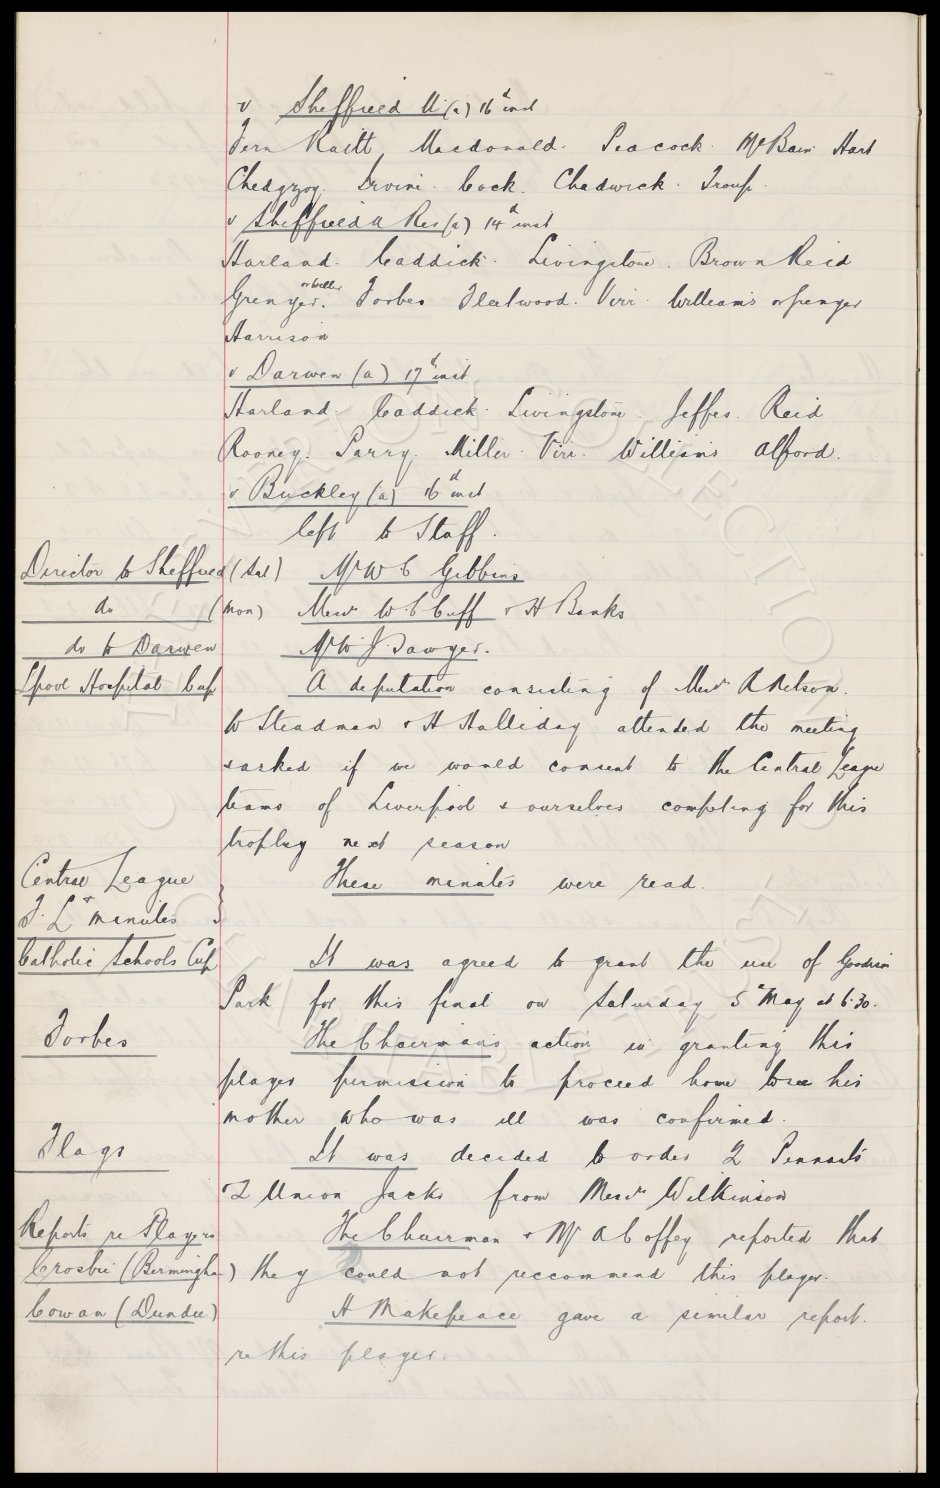 v Sheffield U (a) 16th inst
Fern Raitt Macdonald. Peacock. McBain Hart
Chedgzoy. Irvine. Cock. Chadwick. Troup.
v Sheffield U Res (a) 14th inst
Harland. Caddick. Livingstone. Brown Reid
or Weller
Grenyer. Forbes Fleetwood. Virr. Williams or Grenyer
Harrison
v Darwen (a) 17th inst
Harland. Caddick. Livingstone. Jeffes. Reid
Rooney. Parry. Miller. Virr. Williams Alford.
v Buckley (a) 16th inst
left to Staff.
Director to Sheffield (Sat) Mr W C Gibbins
do (Mon) Messrs W C Cuff & H Banks
do to Darwen Mr W J Sawyer.
Lpool Hospital Cup A deputation consisting of Messrs R Nelson.
W Steadman & H Halliday attended the meeting
& asked if we would consent to the Central League
teams of Liverpool & ourselves competing for this
trophy next season
Central League These minutes were read.
F. L. minutes
Catholic Schools Cup It was agreed to grant the use of Goodison
Park for this final on Saturday 5th May at 6.30.
Forbes The Chairman's action in granting this
player permission to proceed home to see his
mother who was ill was confirmed.
Flags It was decided to order 2 Pennants
& 2 Union Jacks from Messrs Wilkinson
Reports re Players The Chairman & Mr A Coffey reported that
Crosbie (Birmingham) they could not reccommend this player.
Cowan (Dundee) H Makepeace gave a similar report.
re this player.